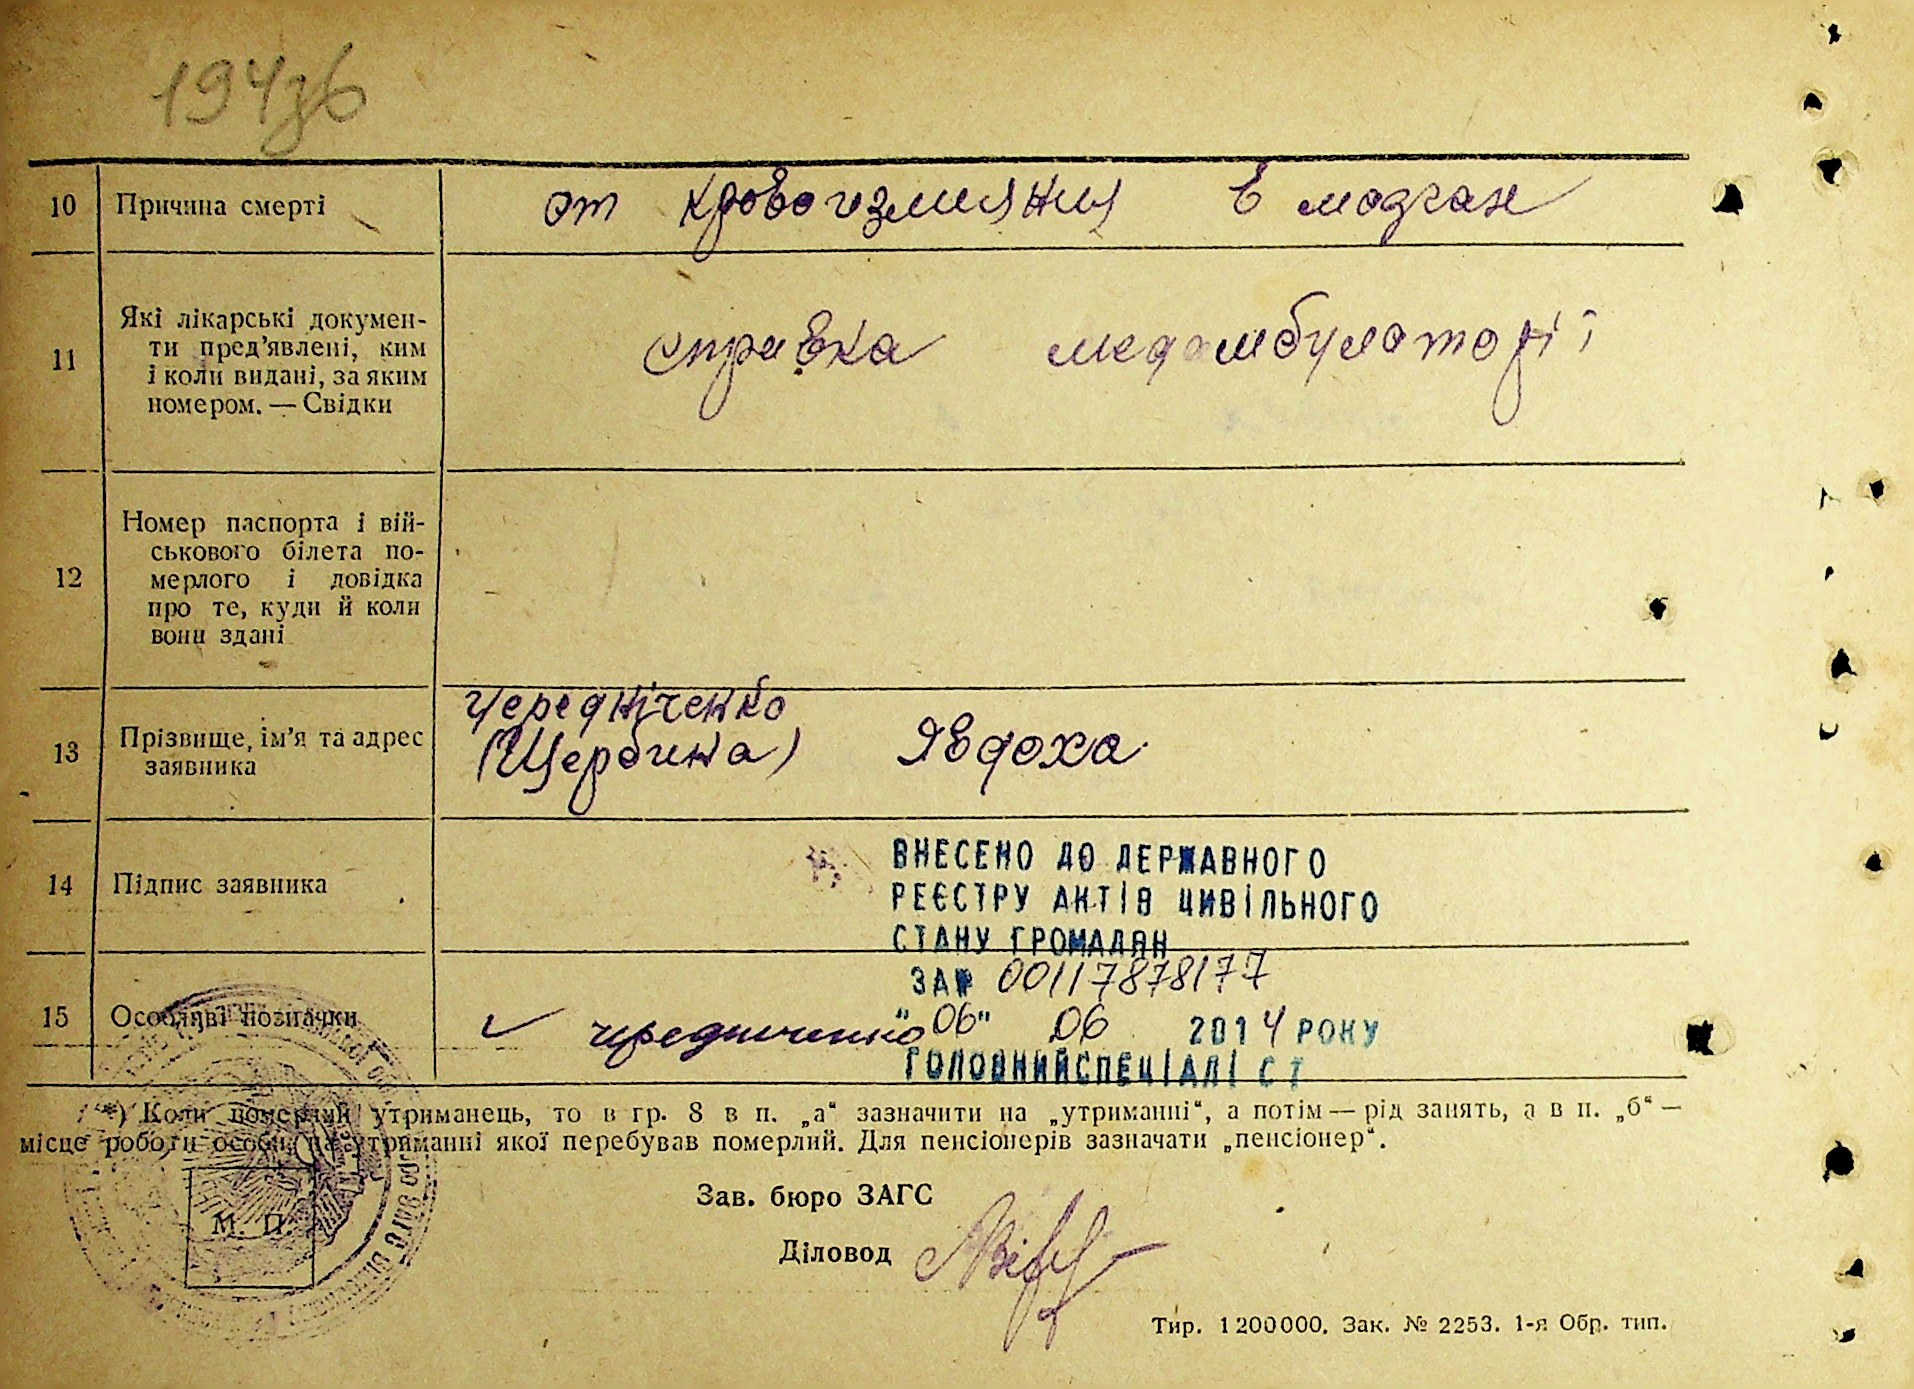 10 Причина смерті от кровоизлияния в мозгах
11 Які лікарські докумен-
ти пред'явлені, ким
і коли видані, за яким
номером. — Свідки
справка медамбулаторіі
12 Номер паспорта і вій-
ськового білета по-
мерлого і довідка
про те, куди й коли
вони здані
13 Прізвище, ім'я та адрес
заявника
Чередніченко
(Щербина) Явдоха
14 Підпис заявника
ВНЕСЕНО ДО ДЕРЖАВНОГО
РЕЄСТРУ АКТІВ ЦИВІЛЬНОГО
СТАНУ ГРОМАДЯН
ЗА № 00117878177
"06" 06 2014 РОКУ
ГОЛОВНИЙ СПЕЦІАЛІСТ
15 Особливі позначки
чередниченко
*) Коли померлий утриманець, то в гр. 8 в п. „а“ зазначити на „утриманні“, а потім — рід занять, а в п. „б“ —
місце роботи особи, на утриманні якої перебував померлий. Для пенсіонерів зазначати „пенсіонер“.
Зав. бюро ЗАГС
М. П.
Діловод
Тир. 1200000. Зак. № 2253. 1-я Обр. тип.